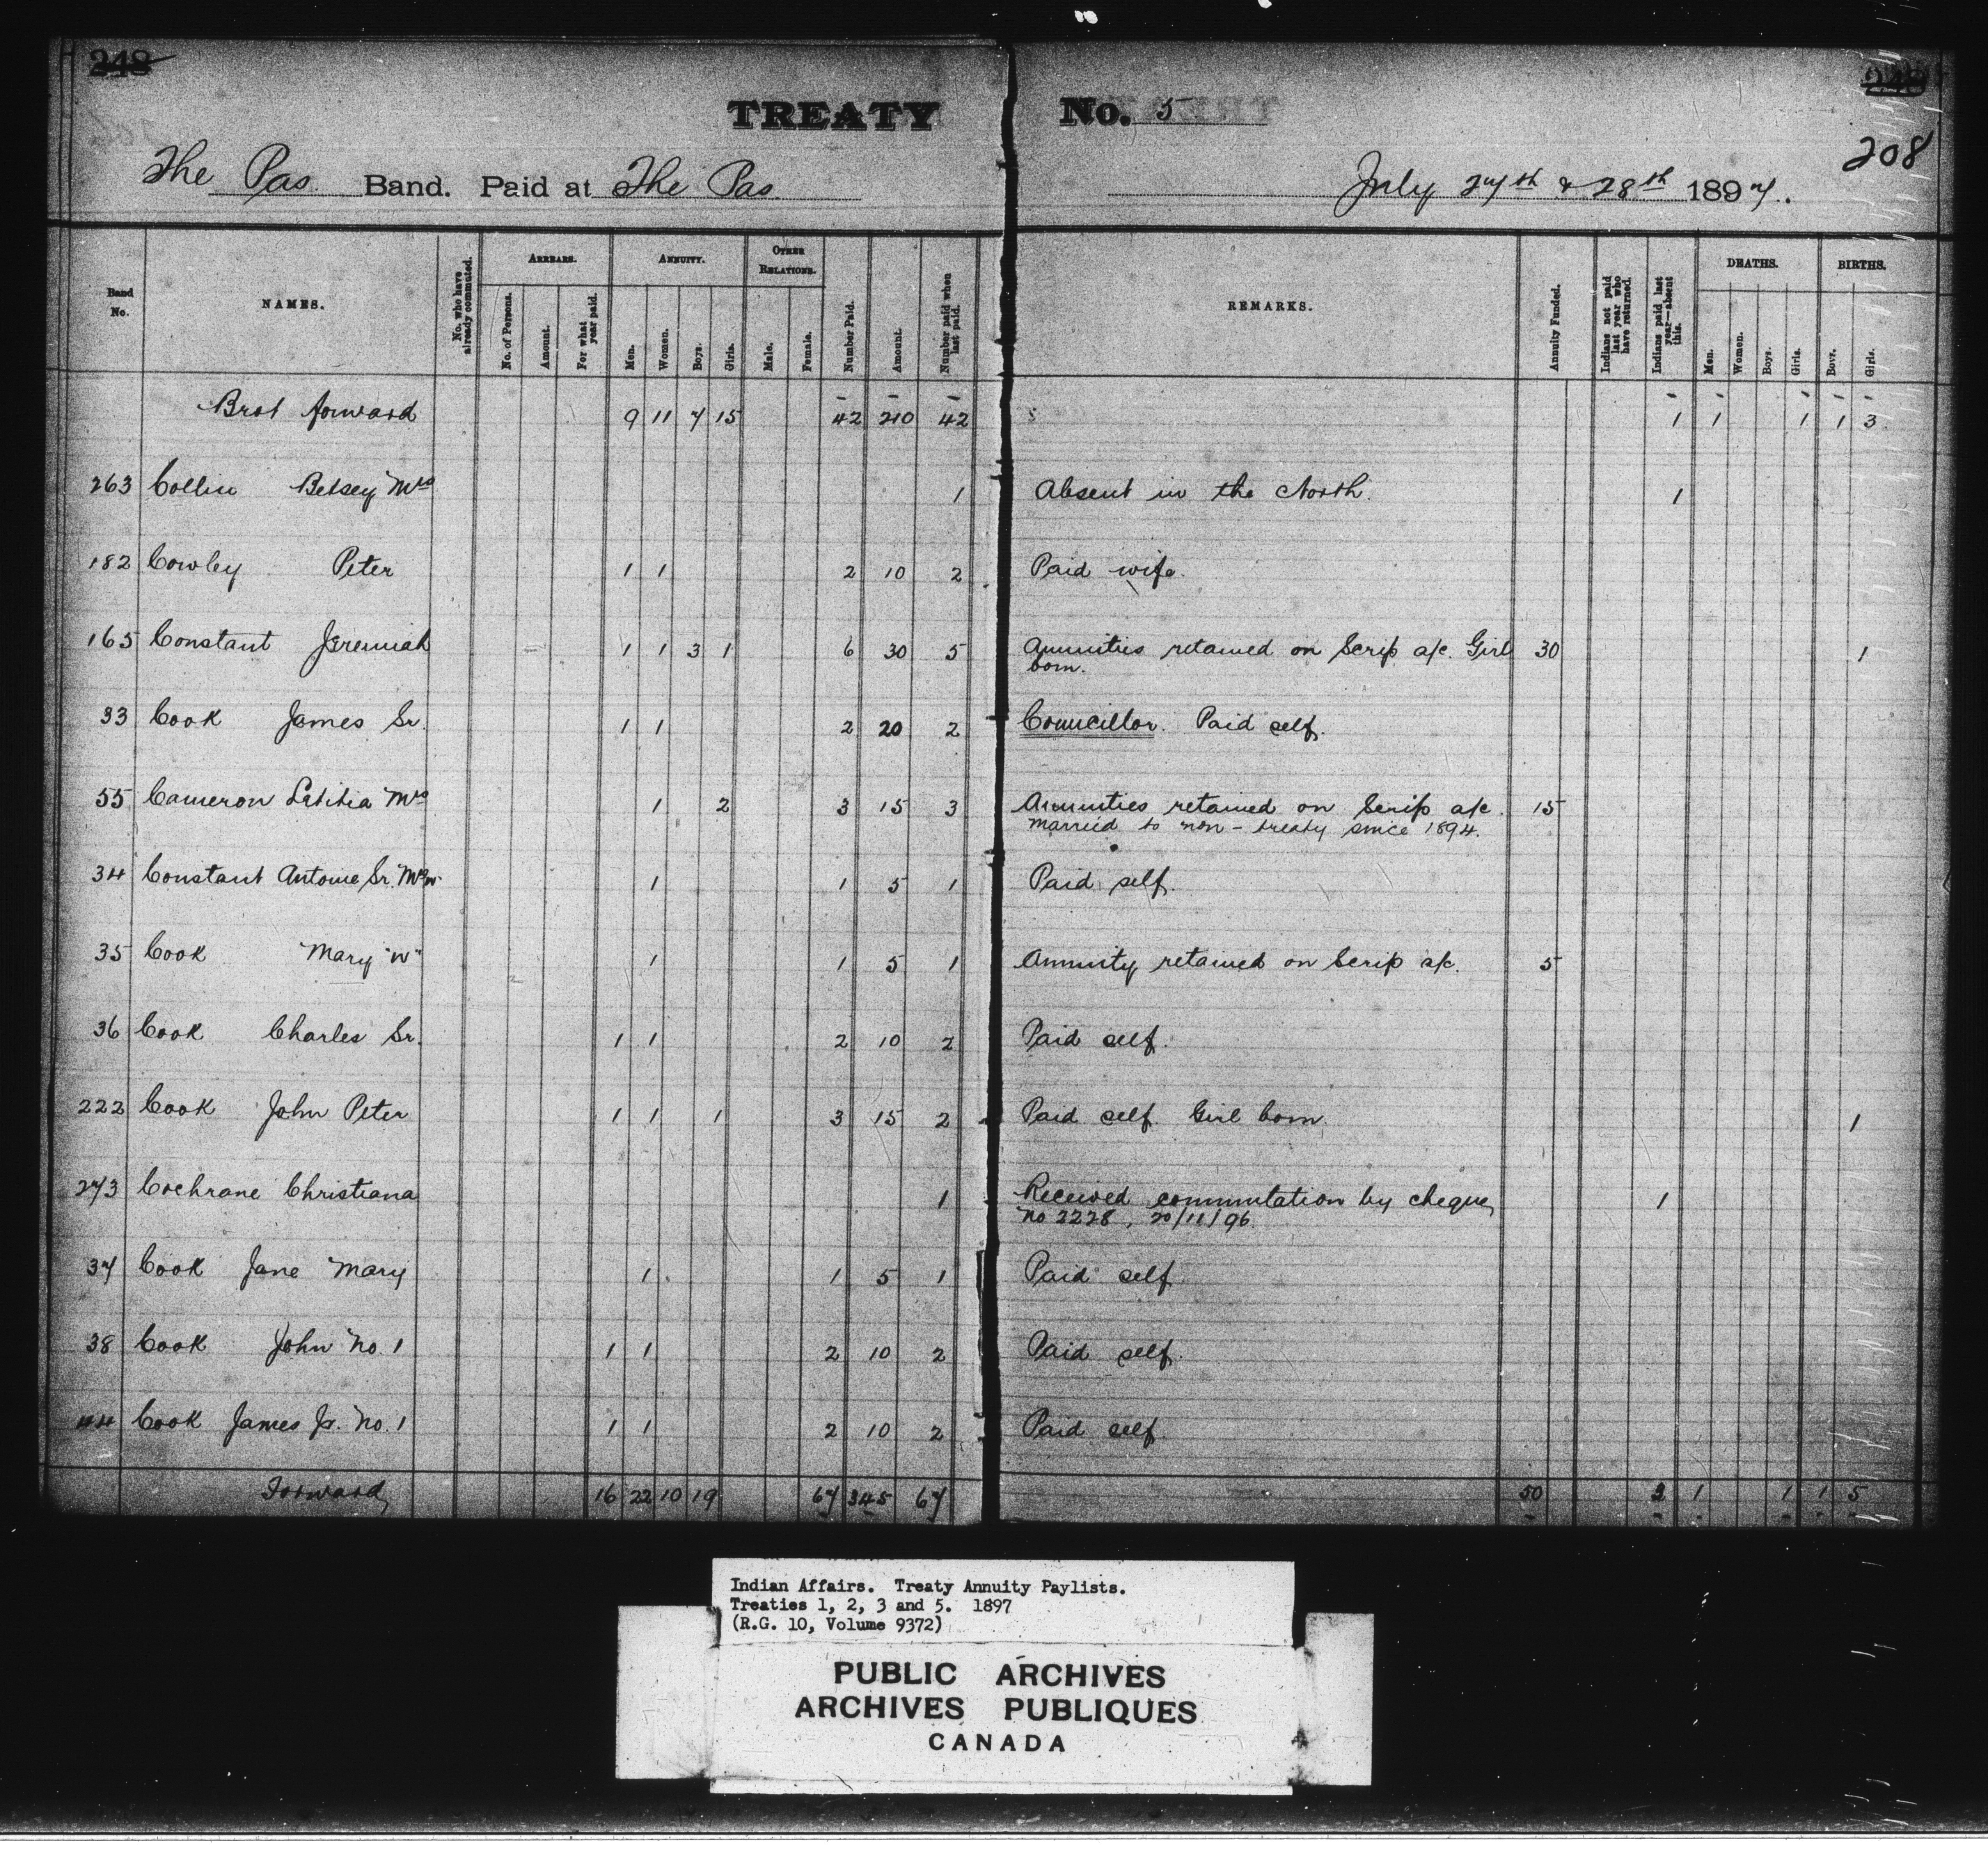 248
248
208
TREATY No. 5
The Pas Band. Paid at The Pas. July 27th & 28th 1897.
Band No.
NAMES.
No. who have already commuted.
ARREARS.
No. of Persons.
Amount.
For what year paid.
ANNUITY.
Men.
Women.
Boys.
Girls.
OTHER RELATIONS.
Male.
Female.
Number Paid.
Amount.
Number paid when last paid.
REMARKS.
Annuity Funded.
Indians not paid last year who have returned.
Indians paid last year—absent this.
DEATHS.
Men.
Women.
Boys.
Girls.
BIRTHS.
Boys.
Girls.
Brot forward 9 11 7 15 42 210 42 1 1 1 1 3
263 Collin Betsey Mrs 1 Absent in the North. 1
182 Cowley Peter 1 1 2 10 2 Paid wife.
165 Constant Jeremiah 1 1 3 1 6 30 5 Annuities retained on Scrip a/c. Girl 30 1
born.
33 Cook James Sr. 1 1 2 20 2 Councillor. Paid self.
55 Cameron Letitia Mrs 1 2 3 15 3 Annuities retained on Scrip a/c. 15
married to non-treaty since 1894.
34 Constant Antoine Sr. Mrs W. 1 1 5 1 Paid self.
35 Cook Mary "W" 1 1 5 1 Annuity retained on Scrip a/c. 5
36 Cook Charles Sr. 1 1 2 10 2 Paid self.
222 Cook John Peter 1 1 1 3 15 2 Paid self. Girl born. 1
273 Cochrane Christiana 1 Received commutation by cheque, 1
no 2228, 20/11/96.
37 Cook Jane Mary 1 1 5 1 Paid self
38 Cook John No. 1 1 1 2 10 2 Paid self.
44 Cook James Jr. No. 1 1 1 2 10 2 Paid self.
Forward, 16 22 10 19 67 345 67 50 3 1 1 1 5
Indian Affairs. Treaty Annuity Paylists.
Treaties 1, 2, 3 and 5. 1897
(R.G. 10, Volume 9372)
PUBLIC ARCHIVES
ARCHIVES PUBLIQUES
CANADA